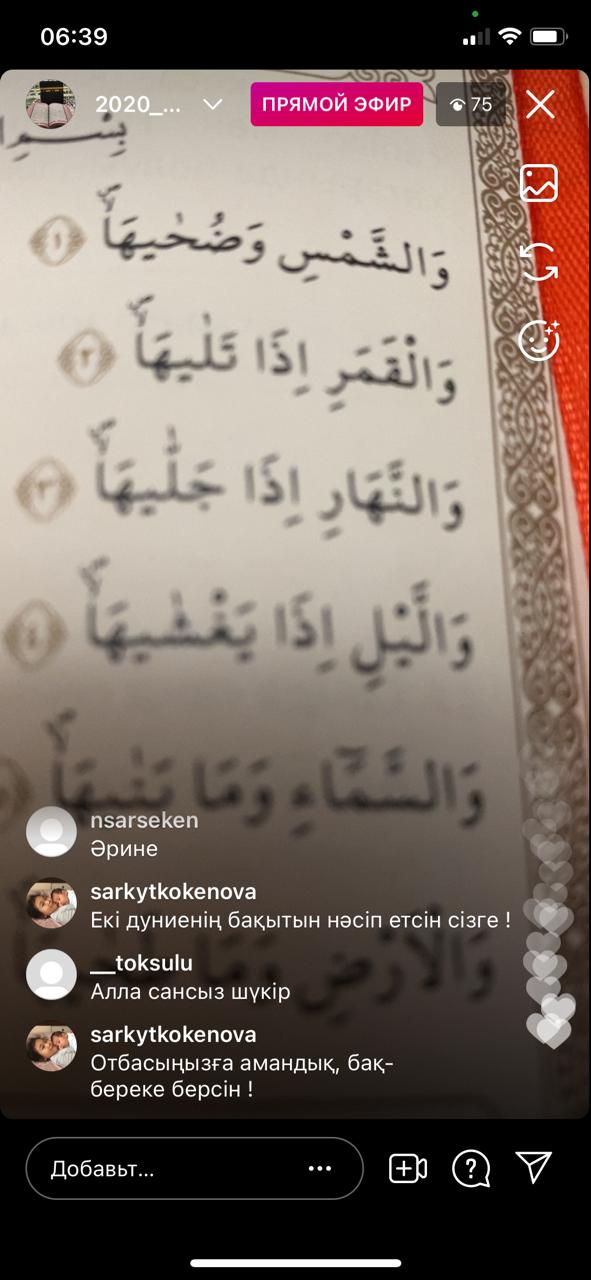 06:39
2020_...
ПРЯМОЙ ЭФИР
75
وَالشَّمْسِ وَضُحٰيهَاۙ ﴿١﴾
وَالْقَمَرِ اِذَا تَلٰيهَاۙ ﴿٢﴾
وَالنَّهَارِ اِذَا جَلّٰيهَاۙ ﴿٣﴾
وَالَّيْلِ اِذَا يَغْشٰيهَاۙ ﴿٤﴾
وَالسَّمَٓاءِ وَمَا بَنٰيهَاۙ
وَالْاَرْضِ وَمَا
nsarseken
Әрине
sarkytkokenova
Екі дуниенің бақытын нәсіп етсін сізге !
__toksulu
Алла сансыз шүкір
sarkytkokenova
Отбасыңызға амандық, бақ-
береке берсін !
Добавьт...